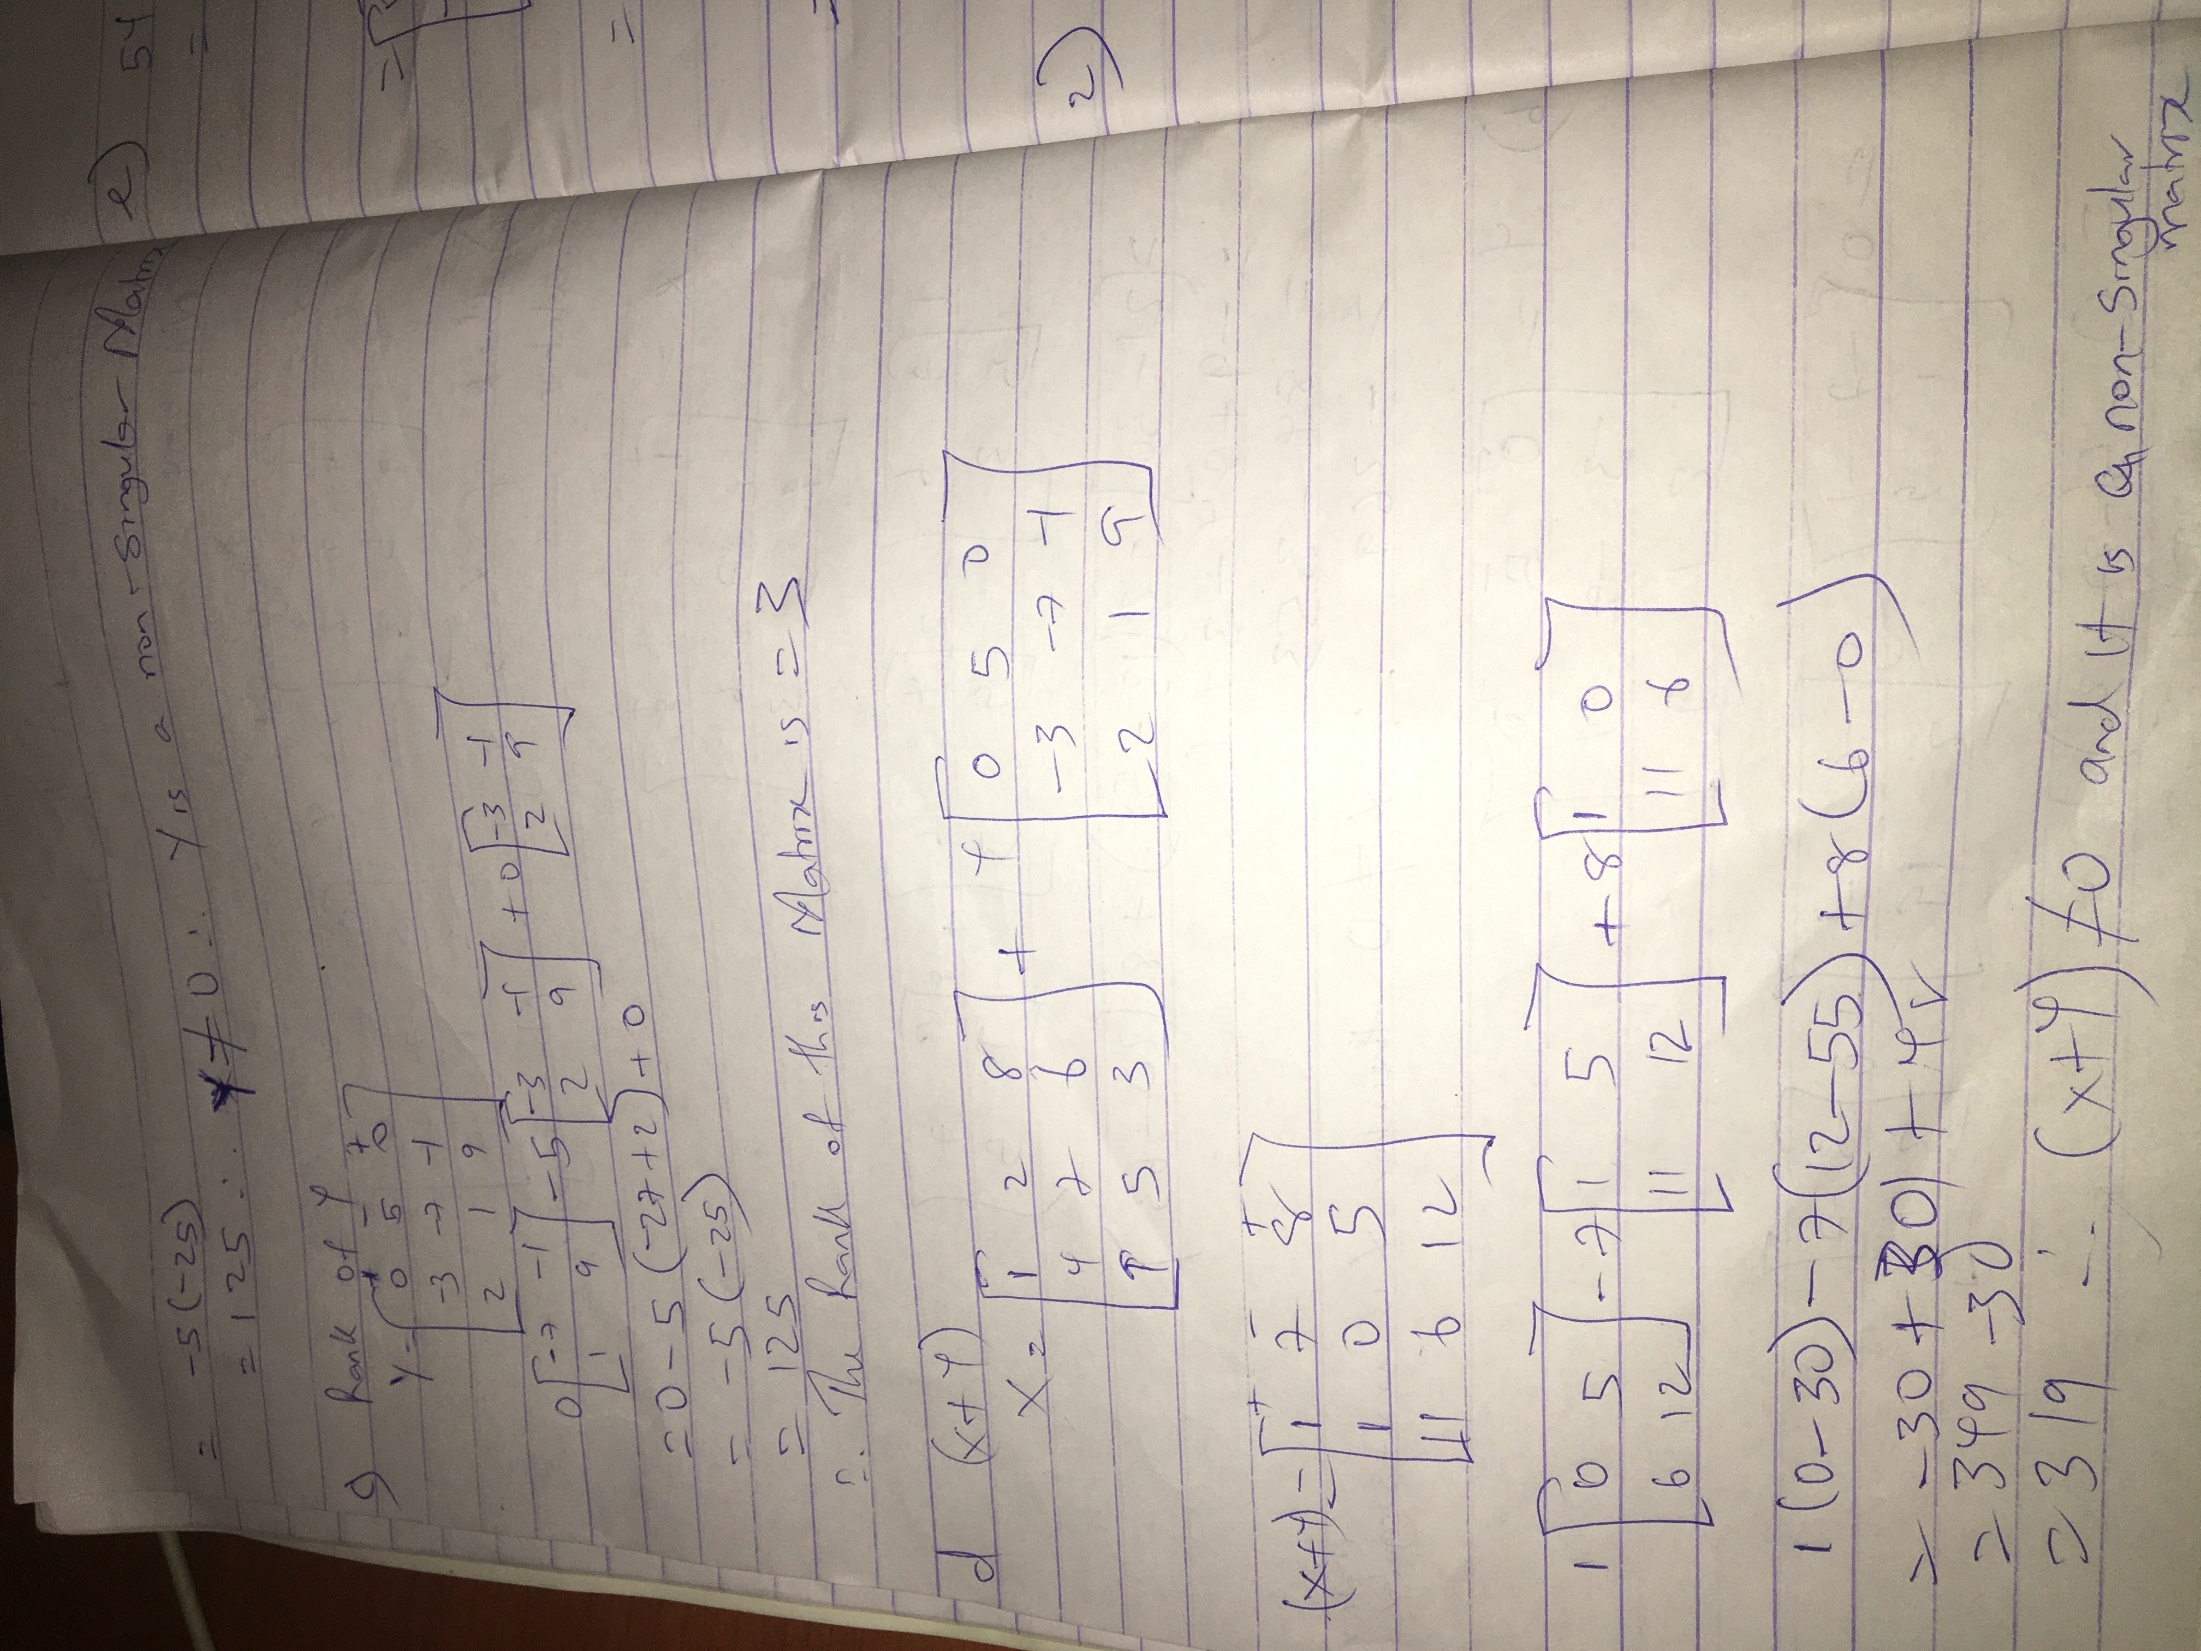 = -5(-25)
= 125 ∴ Y ≠ 0 ∴ Y is a non-Singular Matrix
g Rank of Y
Y = [0 5 0
-3 -7 -1
2 1 9]
0[-7 -1 -5[-3 -1 +0[-3 -1
1 9] 2 9] 2 9]
= 0 - 5(-27+2)+0
= -5(-25)
= 125
∴ The Rank of this Matrix is = 3
d (x+y)
X = [1 2 8 + Y [0 5 0
4 7 6 -3 -7 -1
9 5 3] 2 1 9]
(x+y) = [1 7 8
1 0 5
11 6 12]
1[0 5 -7[1 5 +8[1 0
6 12] 11 12] 11 6]
1(0-30)-7(12-55)+8(6-0)
= -30 + 301 + 48
= 349 - 30
= 319 ∴ (x+y) ≠ 0 and it is a non-Singular
matrix
e) 54
=
=
=
2)